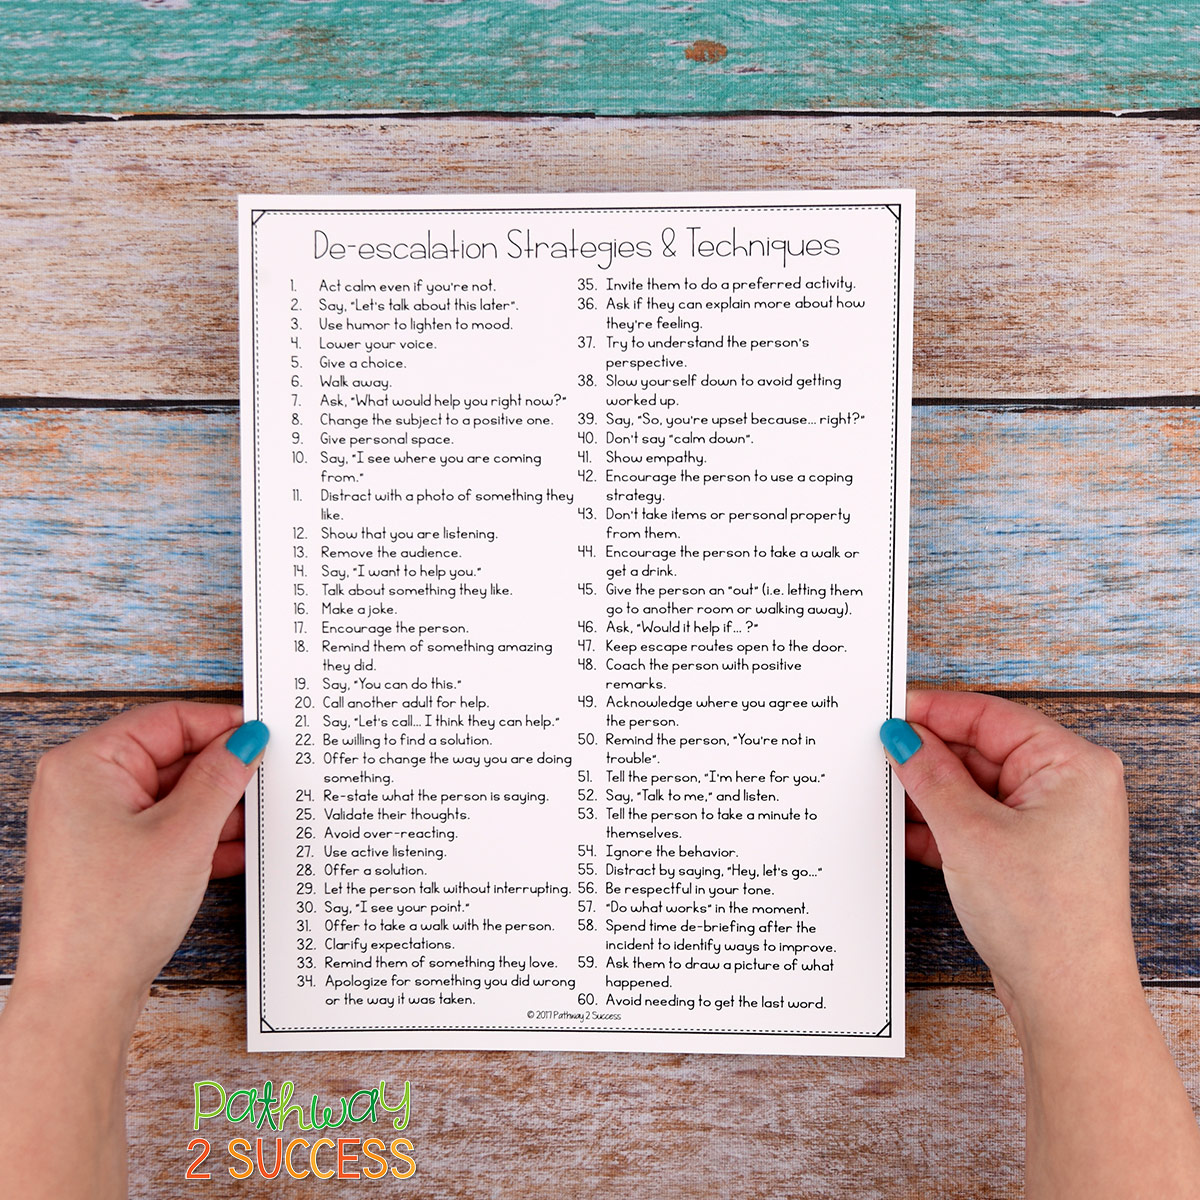 De-escalation Strategies & Techniques
1. Act calm even if you're not.
2. Say, "Let's talk about this later".
3. Use humor to lighten to mood.
4. Lower your voice.
5. Give a choice.
6. Walk away.
7. Ask, "What would help you right now?"
8. Change the subject to a positive one.
9. Give personal space.
10. Say, "I see where you are coming
from."
11. Distract with a photo of something they
like.
12. Show that you are listening.
13. Remove the audience.
14. Say, "I want to help you."
15. Talk about something they like.
16. Make a joke.
17. Encourage the person.
18. Remind them of something amazing
they did.
19. Say, "You can do this."
20. Call another adult for help.
21. Say, "Let's call... I think they can help."
22. Be willing to find a solution.
23. Offer to change the way you are doing
something.
24. Re-state what the person is saying.
25. Validate their thoughts.
26. Avoid over-reacting.
27. Use active listening.
28. Offer a solution.
29. Let the person talk without interrupting.
30. Say, "I see your point."
31. Offer to take a walk with the person.
32. Clarify expectations.
33. Remind them of something they love.
34. Apologize for something you did wrong
or the way it was taken.
35. Invite them to do a preferred activity.
36. Ask if they can explain more about how
they're feeling.
37. Try to understand the person's
perspective.
38. Slow yourself down to avoid getting
worked up.
39. Say, "So, you're upset because... right?"
40. Don't say "calm down".
41. Show empathy.
42. Encourage the person to use a coping
strategy.
43. Don't take items or personal property
from them.
44. Encourage the person to take a walk or
get a drink.
45. Give the person an "out" (i.e. letting them
go to another room or walking away).
46. Ask, "Would it help if... ?"
47. Keep escape routes open to the door.
48. Coach the person with positive
remarks.
49. Acknowledge where you agree with
the person.
50. Remind the person, "You're not in
trouble".
51. Tell the person, "I'm here for you."
52. Say, "Talk to me," and listen.
53. Tell the person to take a minute to
themselves.
54. Ignore the behavior.
55. Distract by saying, "Hey, let's go..."
56. Be respectful in your tone.
57. "Do what works" in the moment.
58. Spend time de-briefing after the
incident to identify ways to improve.
59. Ask them to draw a picture of what
happened.
60. Avoid needing to get the last word.
© 2017 Pathway 2 Success
Pathway
2 SUCCESS